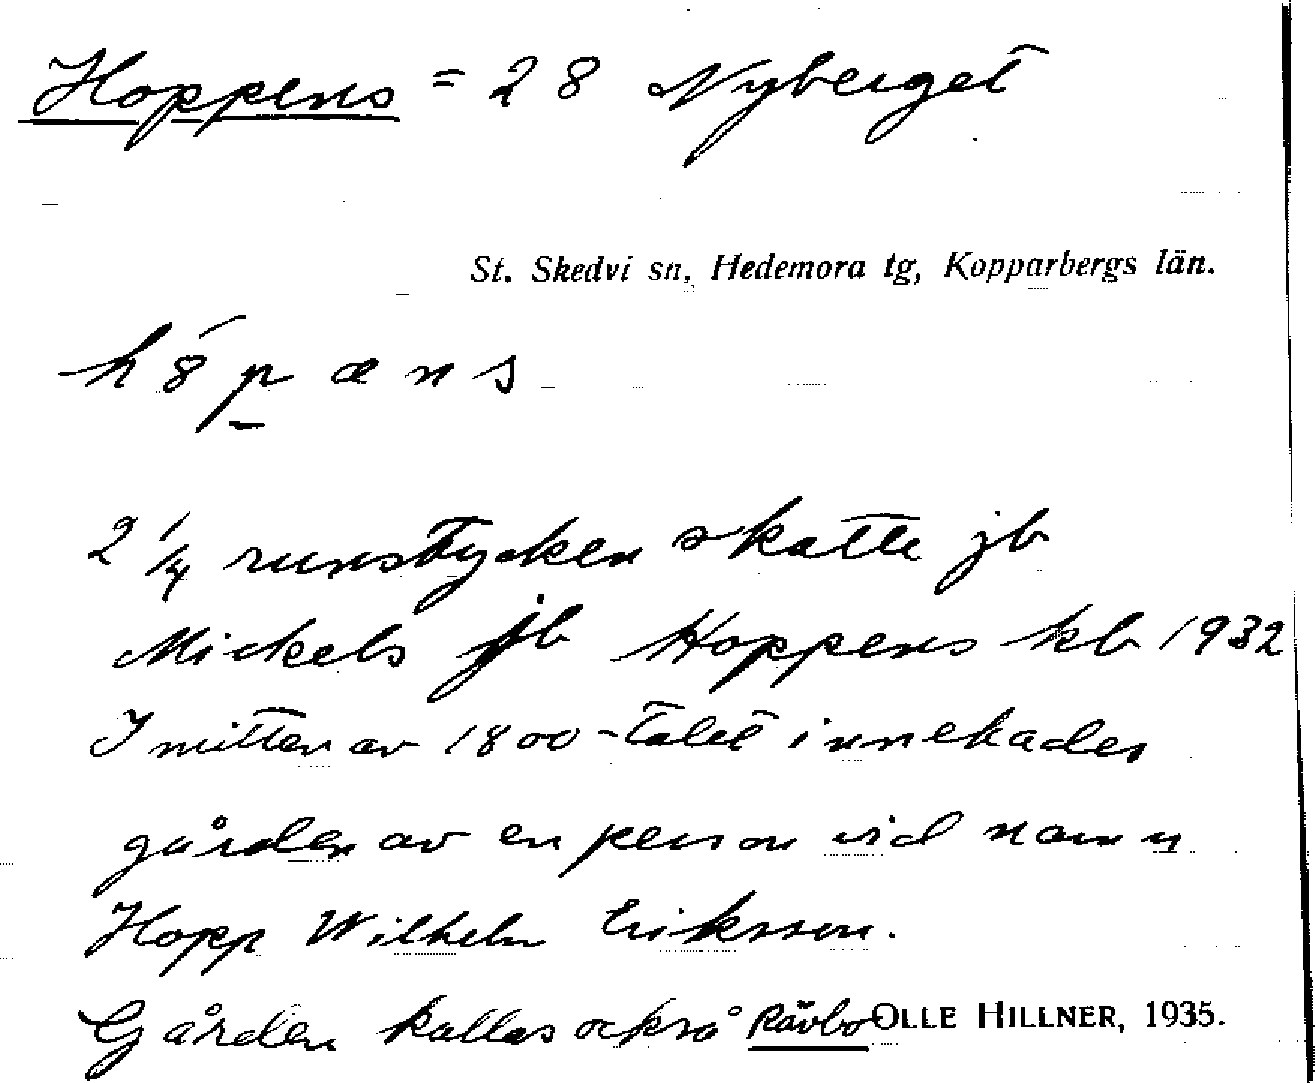 Hoppens = 28 Nyberget
St. Skedvi sn, Hedemora tg, Kopparbergs län.
h8́p̱æns
2 1/4 runstycken skatte jb
Mickels jb Hoppens kb 1932
I mitten av 1800-talet innehades
gården av en person vid namn
Hopp Wilhelm Eriksson.
Gården kallas också Rävbo
OLLE HILLNER, 1935.